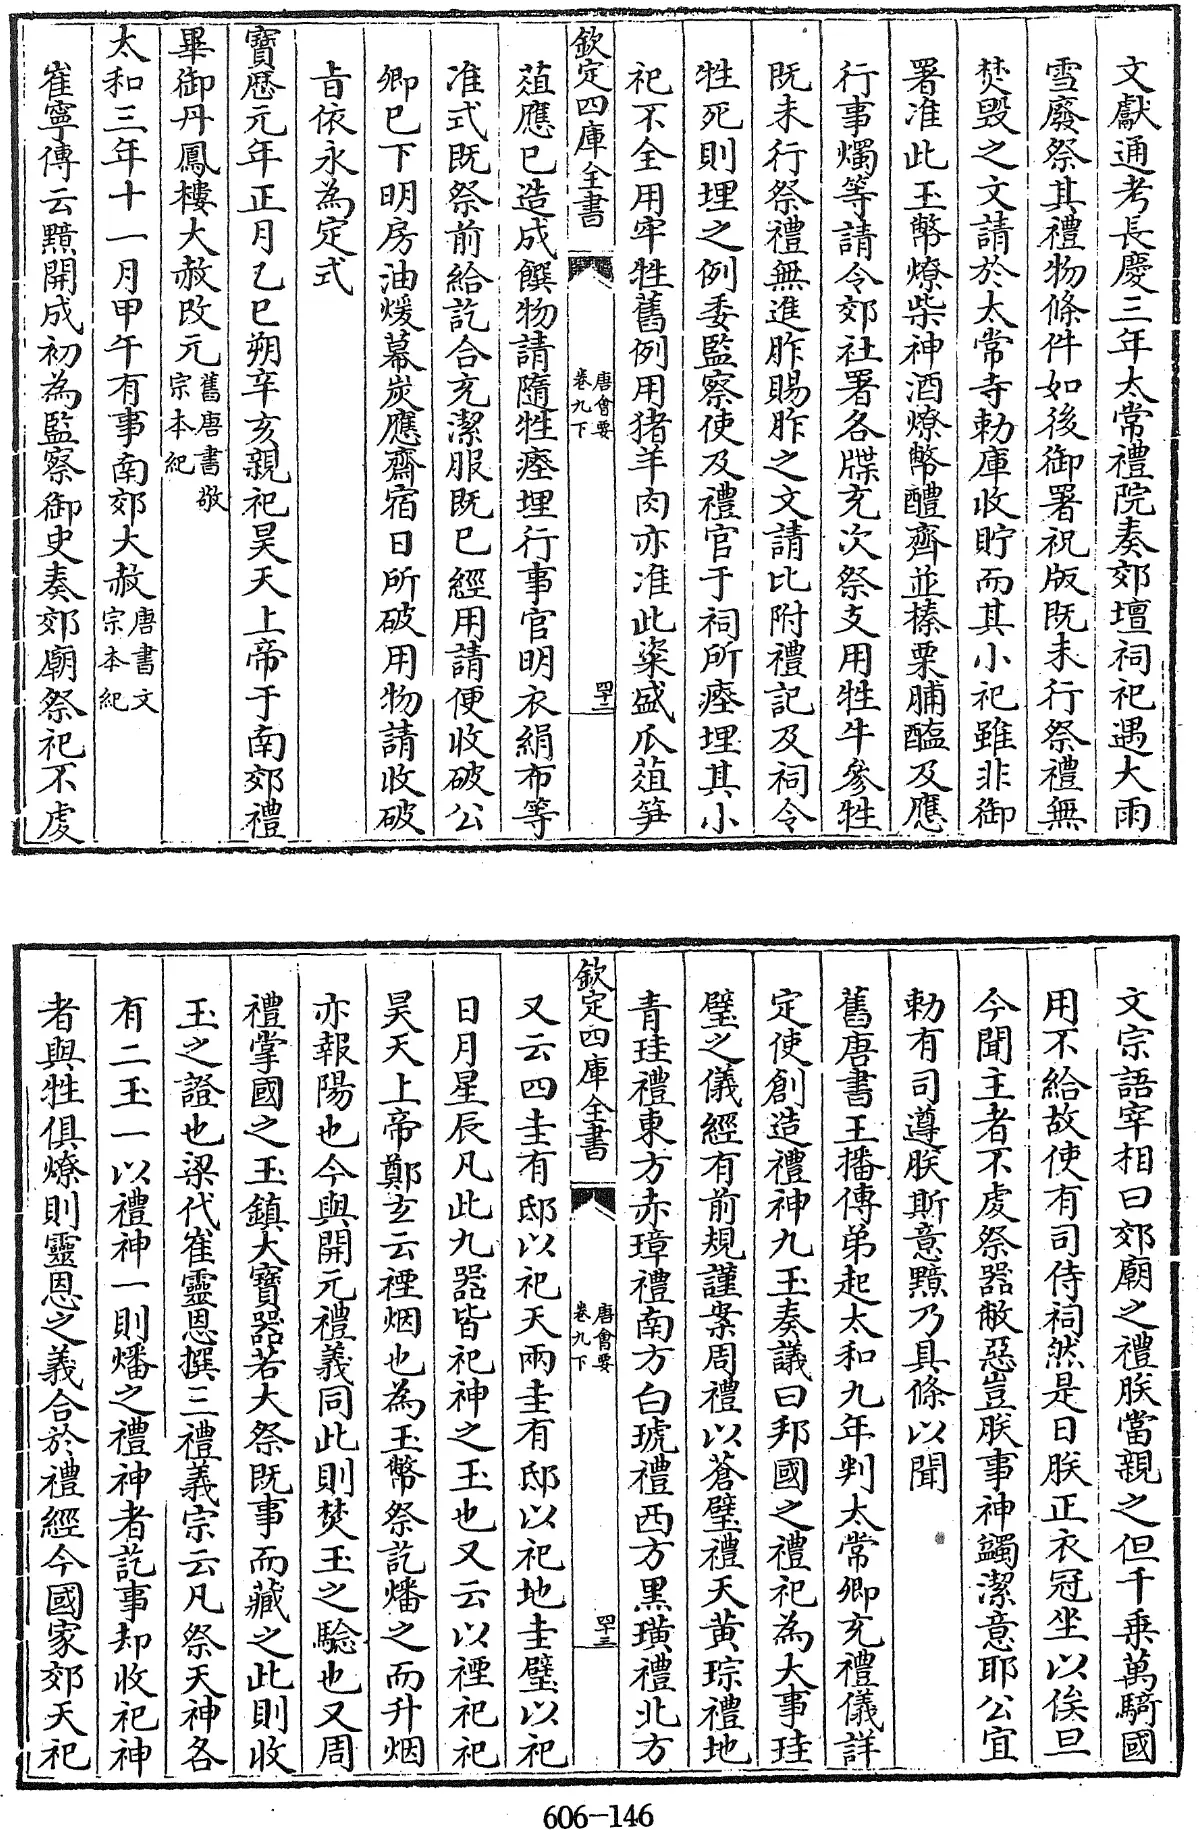 文獻通考長慶三年太常禮院奏郊壇祠祀遇大雨
雪廢祭其禮物條件如後御署祝版既未行祭禮無
焚毀之文請於太常寺勅庫收貯而其小祀雖非御
署准此玉幣燎柴神酒燎幣醴齊並榛栗脯醢及應
行事燭等請令郊社署各牒充次祭支用牲牛參牲
既未行祭禮無進胙賜胙之文請比附禮記及祠令
牲死則埋之例委監察使及禮官于祠所瘞埋其小
祀不全用牢牲舊例用猪羊肉亦准此粢盛瓜葅笋
欽定四庫全書
唐會要
卷九下
四十二
葅應已造成饌物請隨牲瘞埋行事官明衣絹布等
准式既祭前給訖合充潔服既已經用請便收破公
卿已下明房油煖幕炭應齋宿日所破用物請收破
㫖依永為定式
寶歷元年正月乙巳朔辛亥親祀昊天上帝于南郊禮
畢御丹鳳樓大赦改元舊唐書敬宗本紀
太和三年十一月甲午有事南郊大赦唐書文宗本紀
崔寧傳云黯開成初為監察御史奏郊廟祭祀不虔
文宗語宰相曰郊廟之禮朕當親之但千乘萬騎國
用不給故使有司侍祠然是日朕正衣冠坐以俟旦
今聞主者不虔祭器敝惡豈朕事神蠲潔意耶公宜
勅有司遵朕斯意黯乃具條以聞
舊唐書王播傳弟起太和九年判太常卿充禮儀詳
定使創造禮神九玉奏議曰邦國之禮祀為大事珪
璧之儀經有前規謹案周禮以蒼璧禮天黃琮禮地
青珪禮東方赤璋禮南方白琥禮西方黑璜禮北方
欽定四庫全書
唐會要
卷九下
四十三
又云四圭有邸以祀天兩圭有邸以祀地圭璧以祀
日月星辰凡此九器皆祀神之玉也又云以禋祀祀
昊天上帝鄭玄云禋烟也為玉幣祭訖燔之而升烟
亦報陽也今與開元禮義同此則焚玉之驗也又周
禮掌國之玉鎮大寶器若大祭既事而藏之此則收
玉之證也梁代崔靈恩撰三禮義宗云凡祭天神各
有二玉一以禮神一則燔之禮神者訖事却收祀神
者與牲俱燎則靈恩之義合於禮經今國家郊天祀
606-146